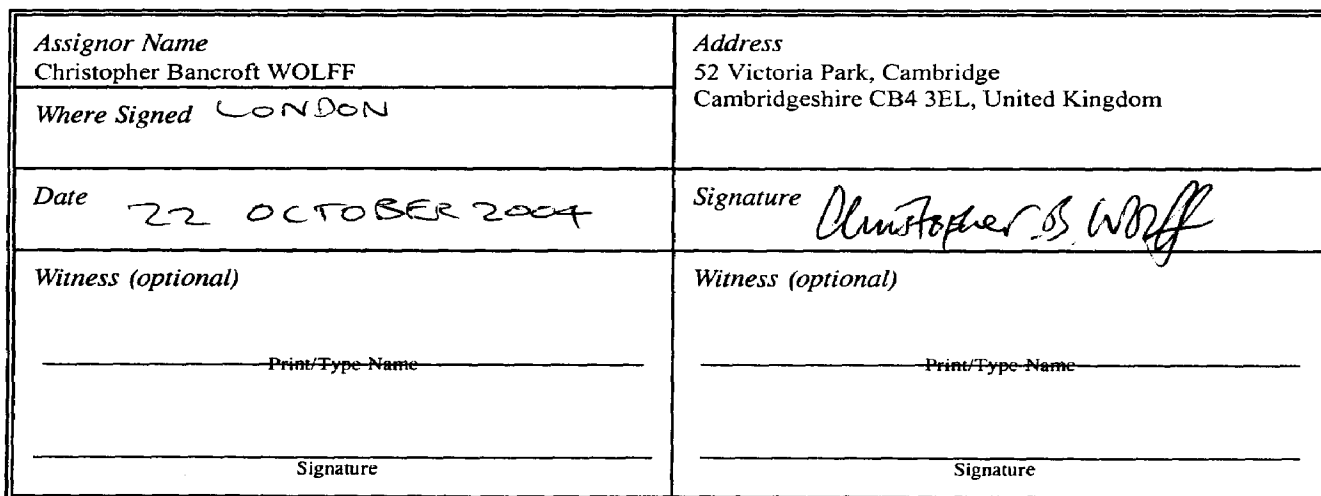 Assignor Name
Christopher Bancroft WOLFF
Where Signed LONDON
Address
52 Victoria Park, Cambridge
Cambridgeshire CB4 3EL, United Kingdom
Date 22 OCTOBER 2004
Signature Christopher B Wolff
Witness (optional)
Print/Type Name
Signature
Witness (optional)
Print/Type Name
Signature